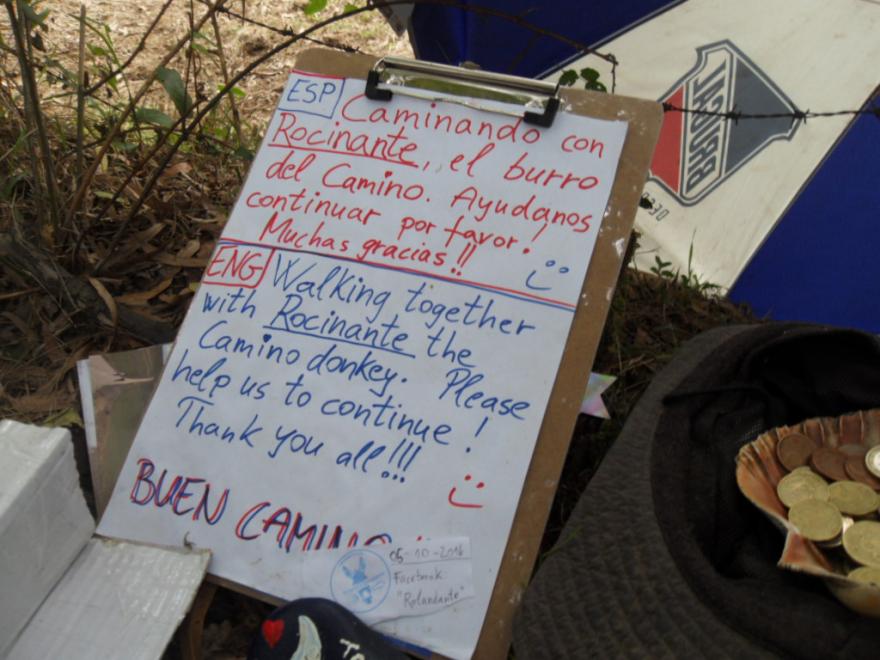 ESP Caminando con
Rocinante, el burro
del Camino. Ayudanos
continuar por favor!
Muchas gracias!!
ENG Walking together
with Rocinante the
Camino donkey. Please
help us to continue!
Thank you all!!!
BUEN CAMINO
05-10-2016
Facebook
"Rolandante"